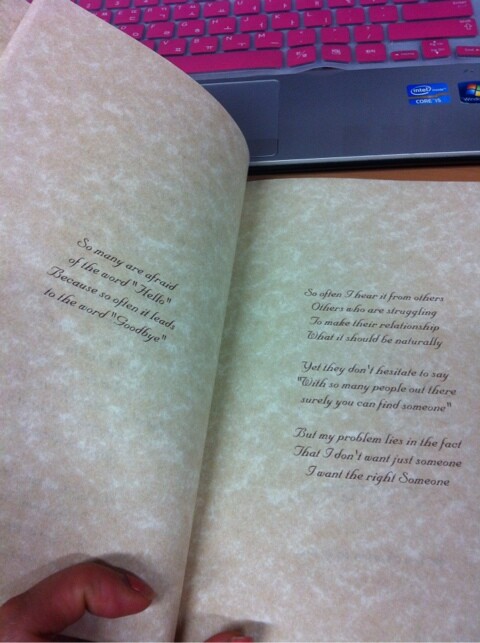 So many are afraid
of the word "Hello"
Because so often it leads
to the word "Goodbye"
So often I hear it from others
Others who are struggling
To make their relationship
What it should be naturally
Yet they don't hesitate to say
"With so many people out there
surely you can find someone"
But my problem lies in the fact
That I don't want just someone
I want the right Someone
intel
CORE i5